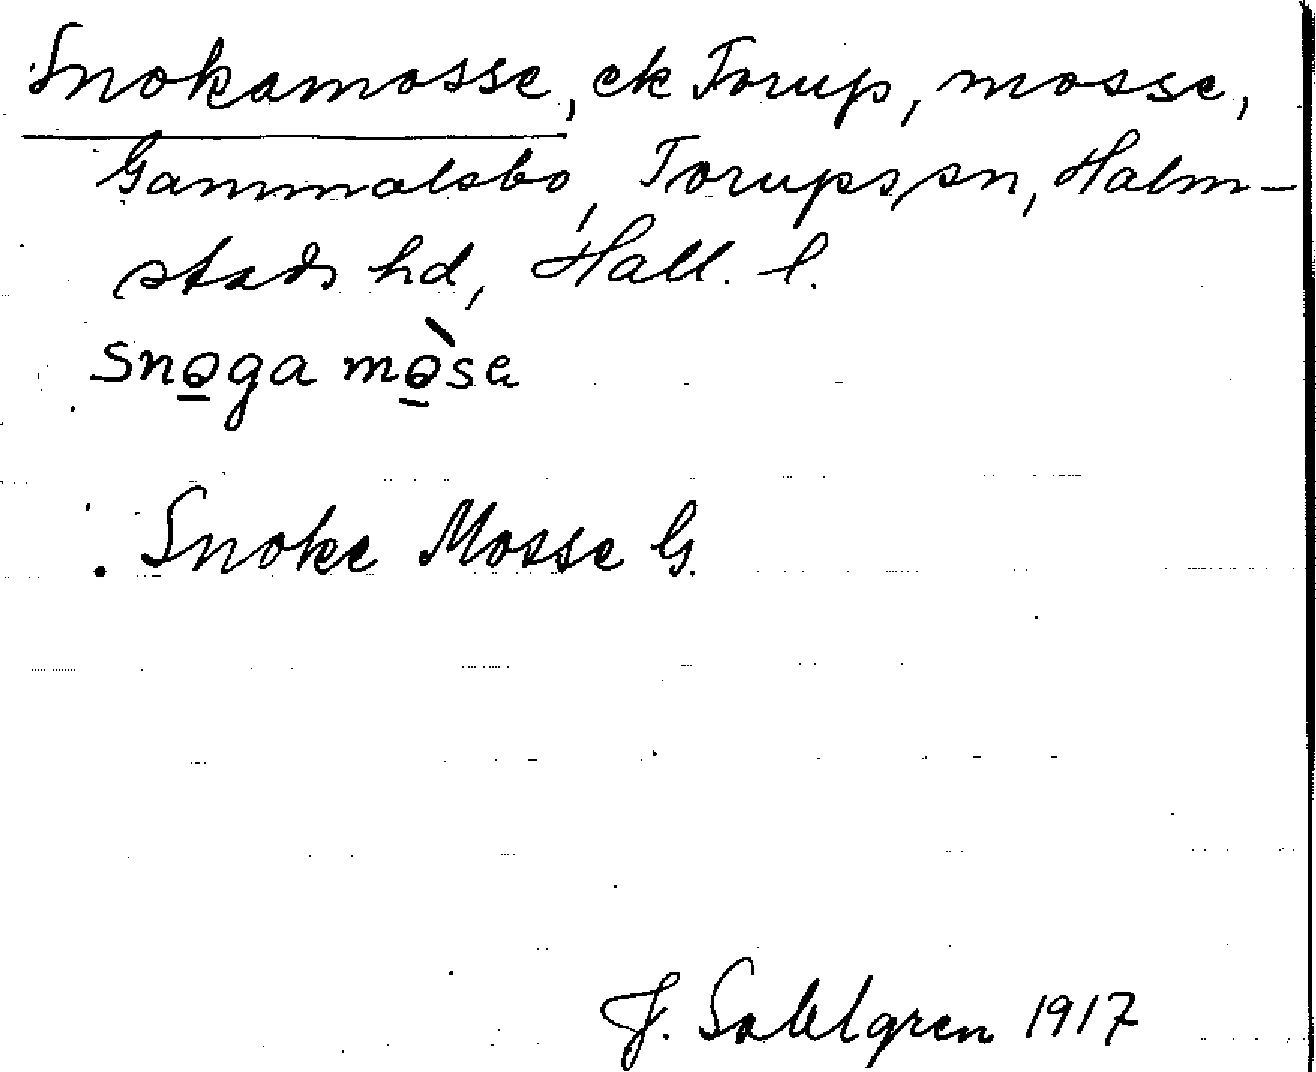 Snokamosse, ek Torup, mosse,
Gammalsbo, Torups sn, Halm-
stads hd, Hall. l.
snøga mø̀sa
. Snoke Mosse G.
J. Sahlgren 1917